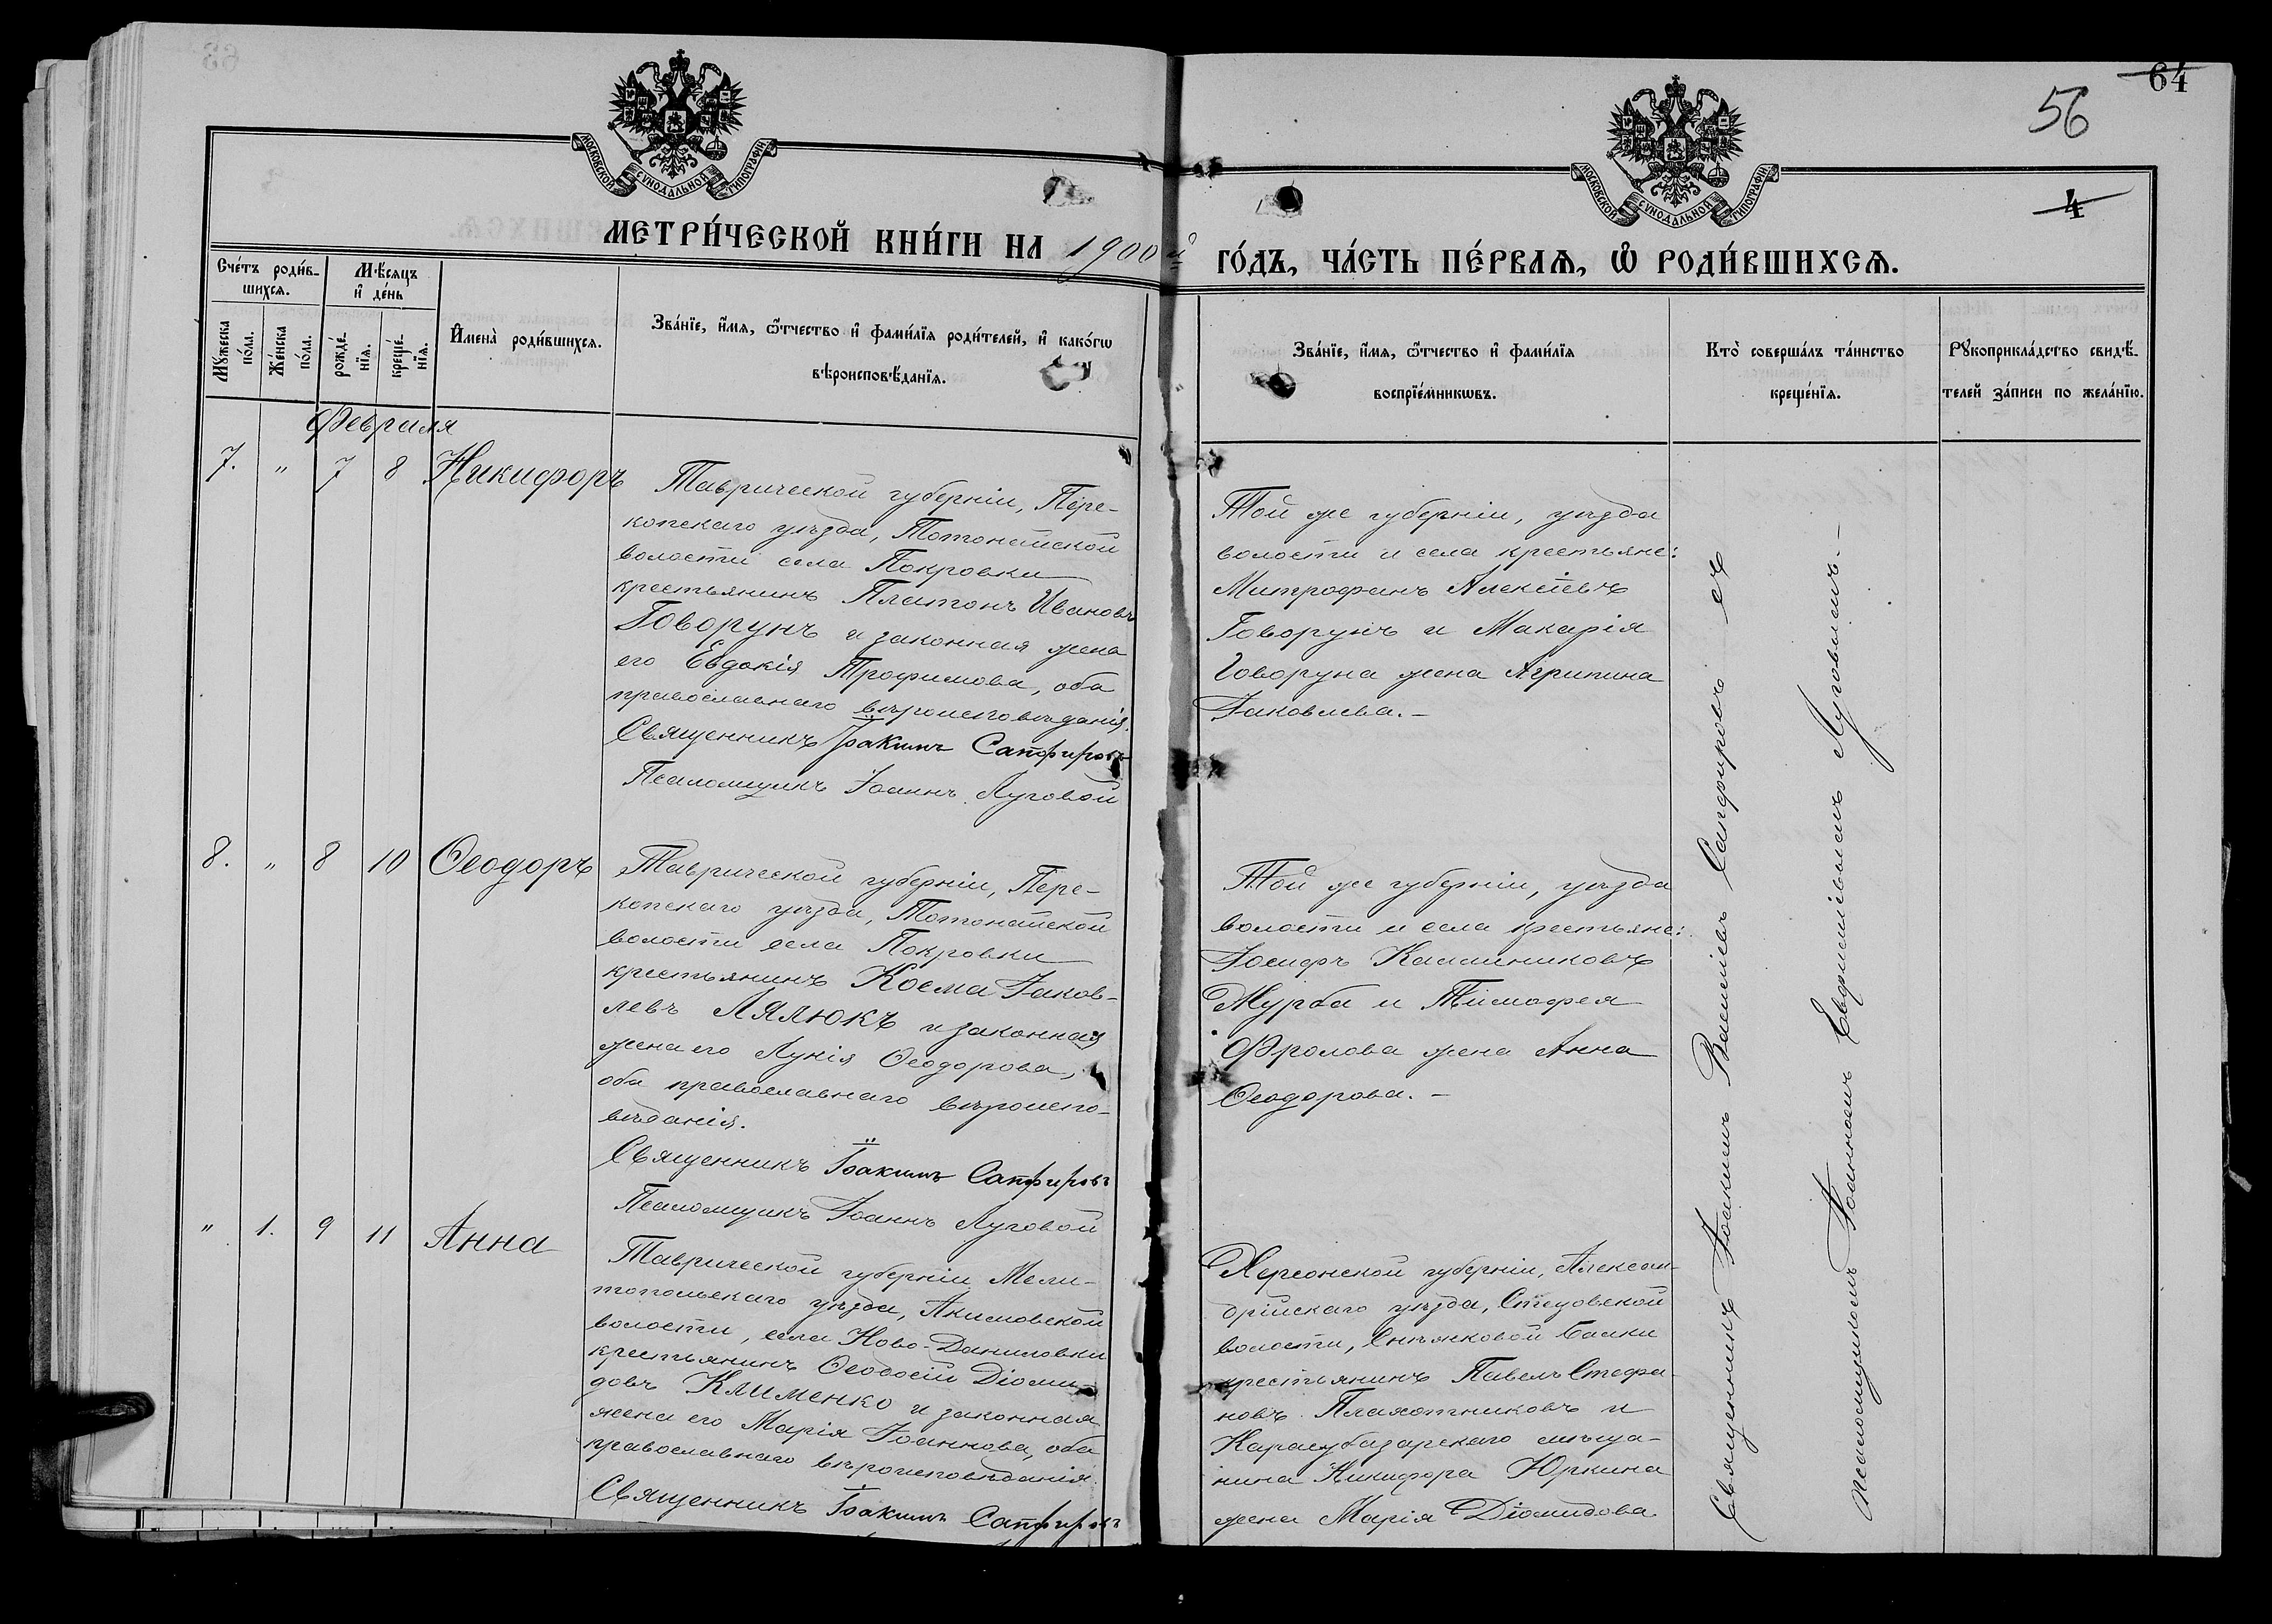 64
56
4
МОСКОВСКОЙ СѴНОДАЛЬНОЙ ТИПОГРАФІИ
МОСКОВСКОЙ СѴНОДАЛЬНОЙ ТИПОГРАФІИ
МЕТРИ́ЧЕСКОЙ КНИ́ГИ НА 1900й ГО́ДЪ, ЧА́СТЬ ПЕ́РВАѦ, Ѡ҆ РОДИ́ВШИХСѦ.
Сче́тъ роди́в-
шихсѧ.
Мѣ́сѧцъ
и҆ де́нь
Мꙋ́жеска
по́ла.
Же́нска
по́ла.
рожде́-
нїѧ.
креще́-
нїѧ.
И҆мена̀ роди́вшихсѧ.
Зва́нїе, и҆́мѧ, ѻ҆́тчество и҆ фами́лїѧ роди́телей, и҆ како́гѡ
вѣроисповѣ́данїѧ.
Зва́нїе, и҆́мѧ, ѻ҆́тчество и҆ фами́лїѧ
воспрїе́мникѡвъ.
Кто̀ соверша́лъ та́инство
креще́нїѧ.
Рꙋкоприкла́дство свидѣ́-
телей за́писи по жела́нїю.
Февраля
7. " 7 8 Никифоръ
Таврической губерніи, Пере-
копскаго уѣзда, Тотонайской
волости села Покровки
крестьянинъ Платонъ Ивановъ
Говорунъ и законная жена
его Евдокія Трофимова, оба
православнаго вѣроисповѣданія.
Священникъ Іоакимъ Сапфировъ
Псаломщикъ Іоаннъ Луговой
Той же губерніи, уѣзда
волости и села крестьяне:
Митрофанъ Алексѣевъ
Говорунъ и Макарія
Говоруна жена Агрипина
Іаковлева.-
8. " 8 10 Ѳеодоръ
Таврической губерніи, Пере-
копскаго уѣзда, Тотонайской
волости села Покровки
крестьянинъ Косма Іаков-
левъ Лялюкъ и законная
жена его Лукія Ѳеодорова,
оба православнаго вѣроиспо-
вѣданія.
Священникъ Іоакимъ Сапфировъ
Псаломщикъ Іоаннъ Луговой
Той же губерніи, уѣзда
волости и села крестьяне:
Іосифъ Калинниковъ
Журба и Тимофея
Фролова жена Анна
Ѳеодорова.-
" 1. 9 11 Анна
Таврической губерніи Мели-
топольскаго уѣзда, Акимовской
волости, села Ново-Даниловки
крестьянинъ Ѳеодосій Діоми-
довъ Клименко и законная
жена его Марія Іоаннова, оба
православнаго вѣроисповѣданія.
Священникъ Іоакимъ Сапфировъ
Херсонской губерніи, Алексан-
дрійскаго уѣзда,
волости, Балки
крестьянинъ Павелъ Стефа-
новъ Плахотниковъ и
Карасубазарскаго мѣща-
нина Никифора Юркина
жена Марія Діомидова
Священникъ Іоакимъ Василіевъ Сапфировъ съ
псаломщикомъ Іоанномъ Евфиміевымъ Луговымъ.-